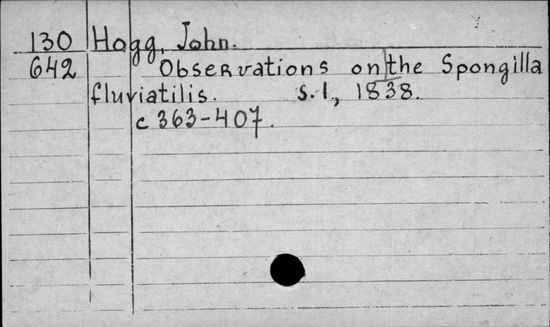 130 Hogg, John.
642 Observations on the Spongilla
fluviatilis. S. l., 1838.
c 363-407.